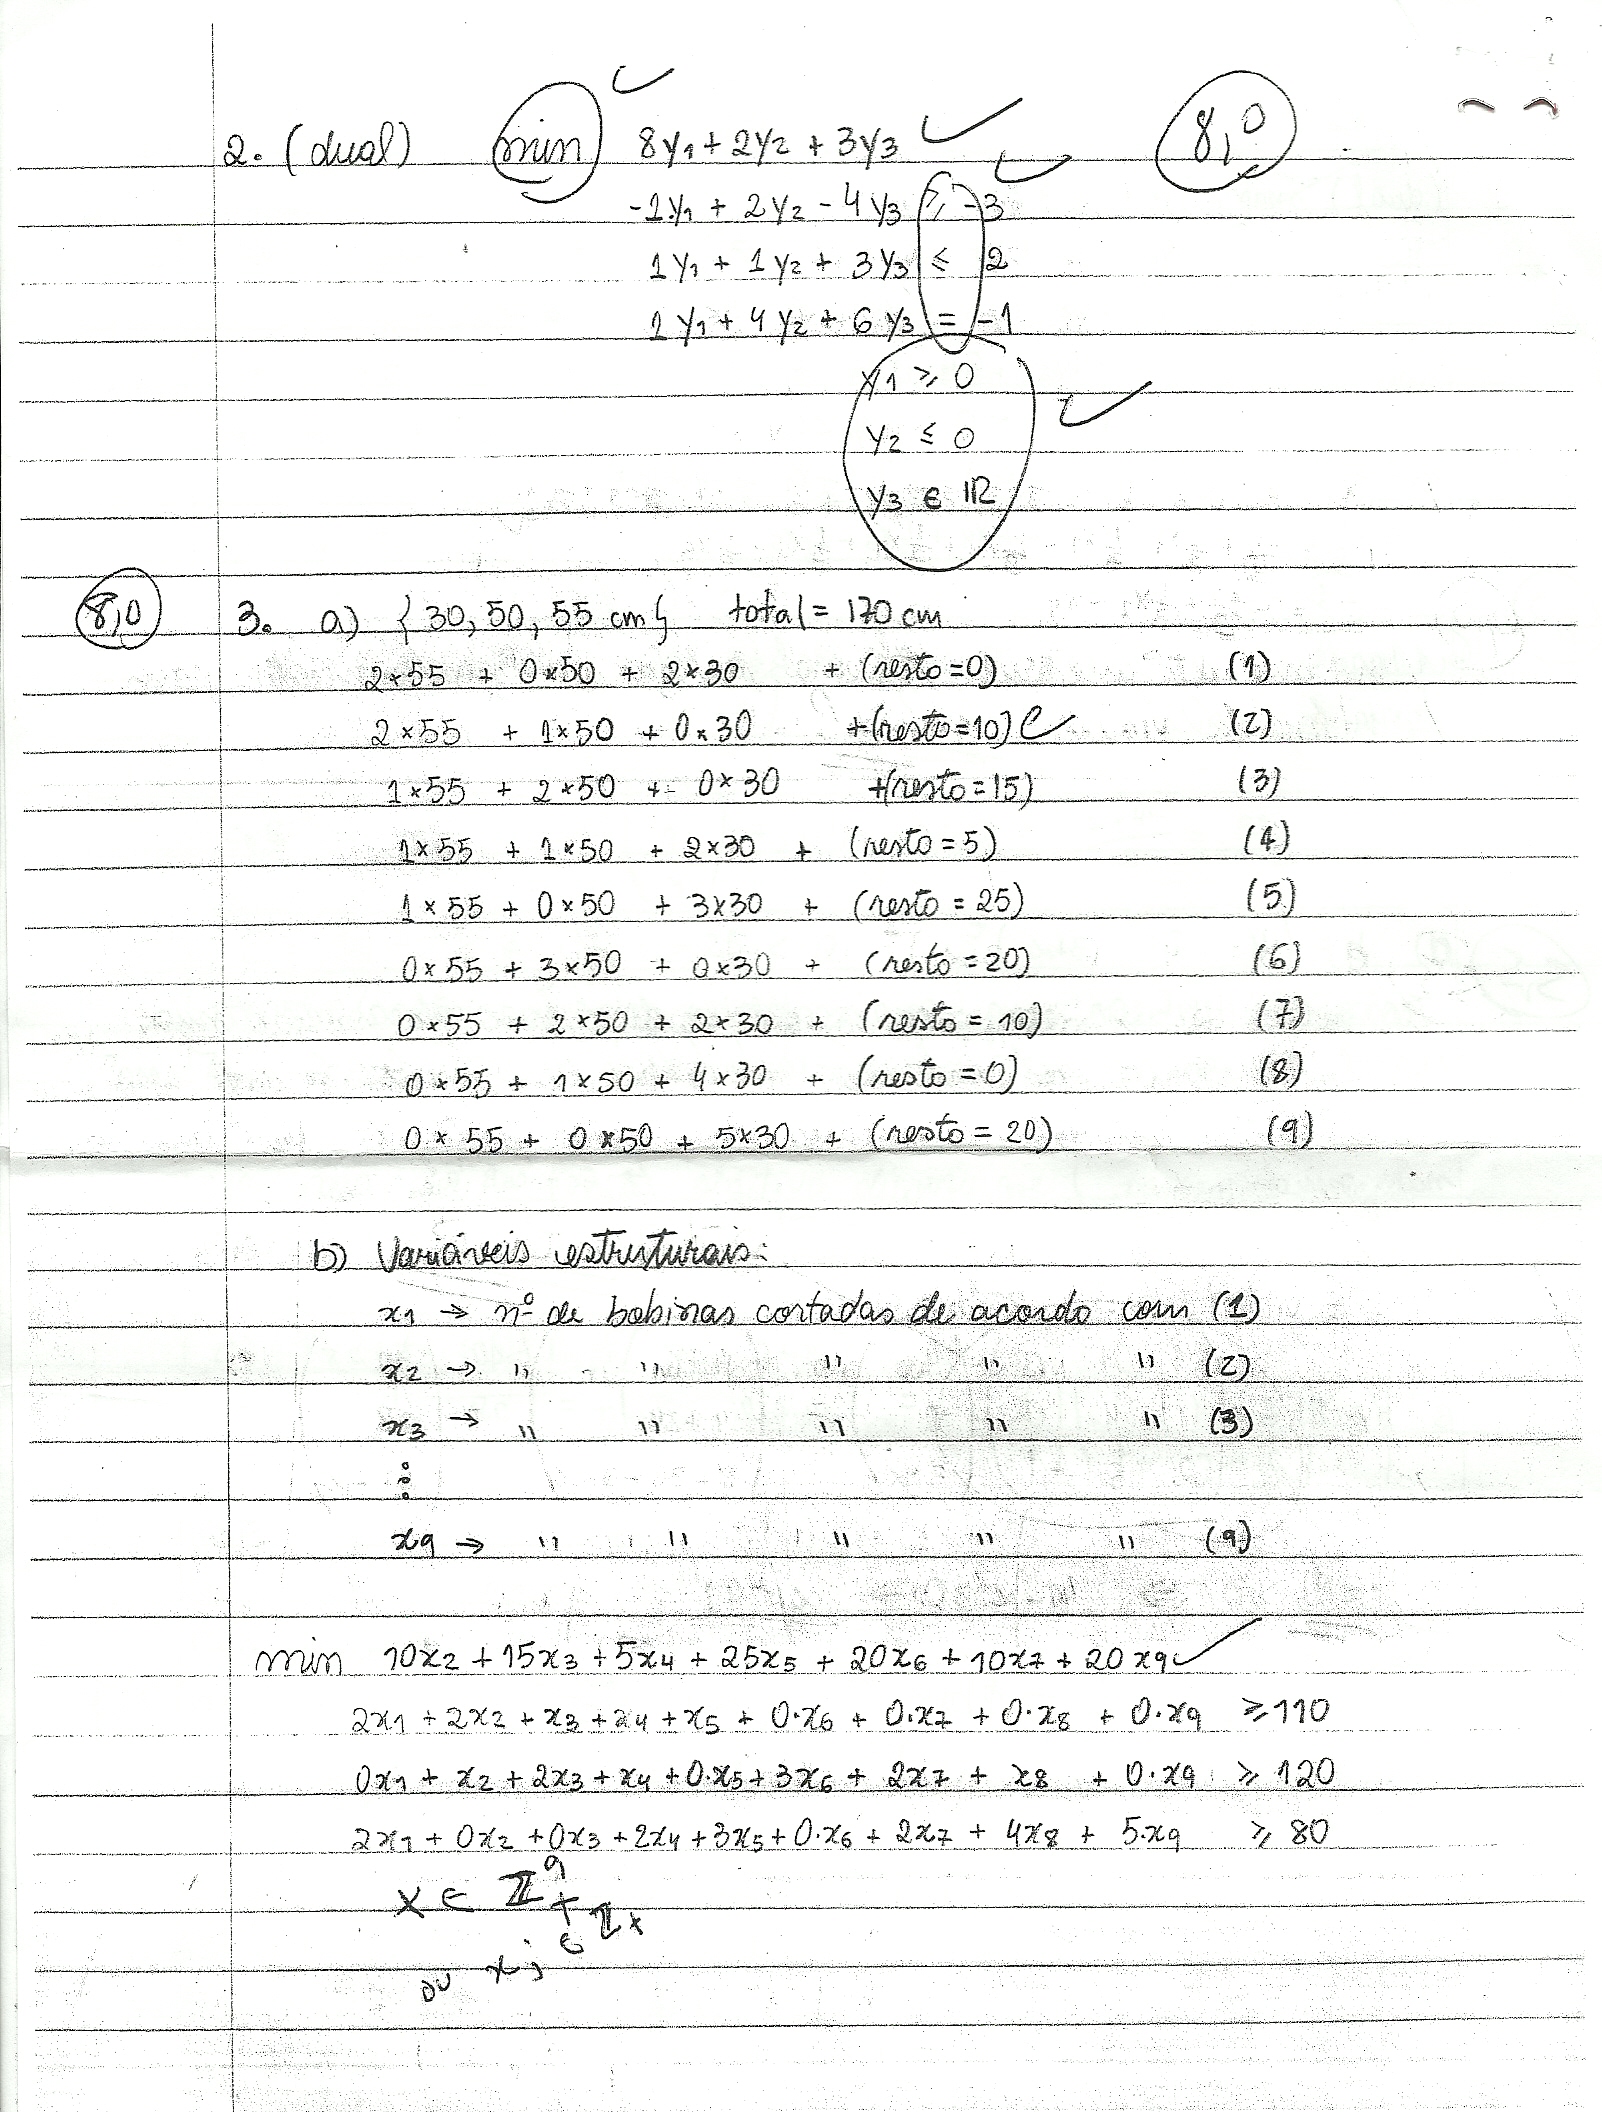 2. (dual) min 8y1 + 2y2 + 3y3 8,0
-1y1 + 2y2 - 4y3 ≥ -3
1y1 + 1y2 + 3y3 ≤ 2
1y1 + 4y2 + 6y3 = -1
y1 ≥ 0
y2 ≤ 0
y3 ∈ IR
8,0 3. a) { 30, 50, 55 cm} total = 170 cm
2×55 + 0×50 + 2×30 + (resto=0) (1)
2×55 + 1×50 + 0×30 +(resto=10) C (2)
1×55 + 2×50 + 0×30 +(resto=15) (3)
1×55 + 1×50 + 2×30 + (resto=5) (4)
1×55 + 0×50 + 3×30 + (resto = 25) (5)
0×55 + 3×50 + 0×30 + (resto = 20) (6)
0×55 + 2×50 + 2×30 + (resto = 10) (7)
0×55 + 1×50 + 4×30 + (resto = 0) (8)
0×55 + 0×50 + 5×30 + (resto = 20) (9)
b) Variáveis estruturais:
x1 → nº de bobinas cortadas de acordo com (1)
x2 → " " " " " (2)
x3 → " " " " " (3)
⋮
x9 → " " " " " (9)
min 10x2 + 15x3 + 5x4 + 25x5 + 20x6 + 10x7 + 20x9
2x1 + 2x2 + x3 + x4 + x5 + 0·x6 + 0·x7 + 0·x8 + 0·x9 ≥ 110
0x1 + x2 + 2x3 + x4 + 0·x5 + 3x6 + 2x7 + x8 + 0·x9 ≥ 120
2x1 + 0x2 + 0x3 + 2x4 + 3x5 + 0·x6 + 2x7 + 4x8 + 5·x9 ≥ 80
x ∈ ℤ⁹₊
ou xj ∈ ℤ₊